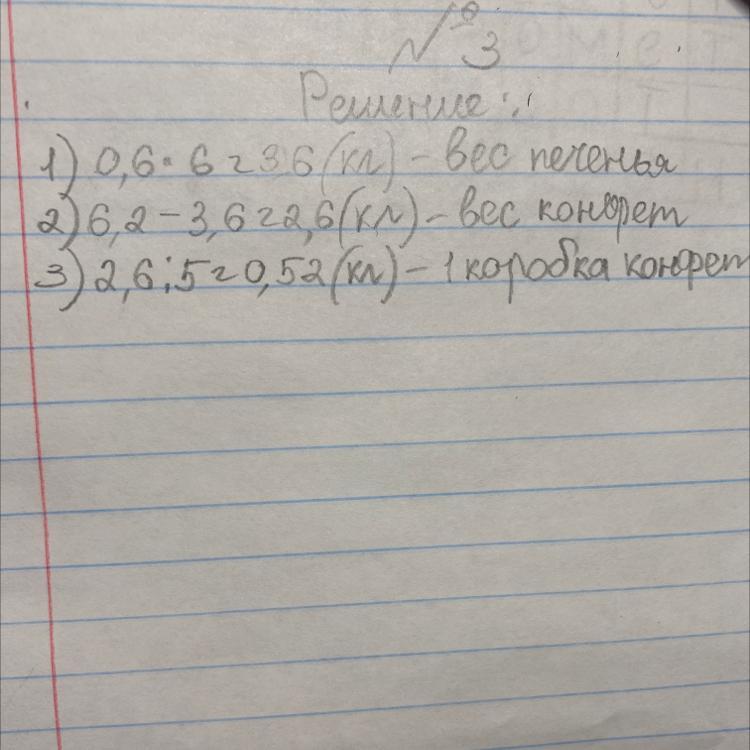 №3
Решение:
1) 0,6·6=3,6(кл) – вес печенья
2) 6,2–3,6=2,6(кл) – вес конфрет
3) 2,6:5=0,52(кл) – 1 коробка конфрет